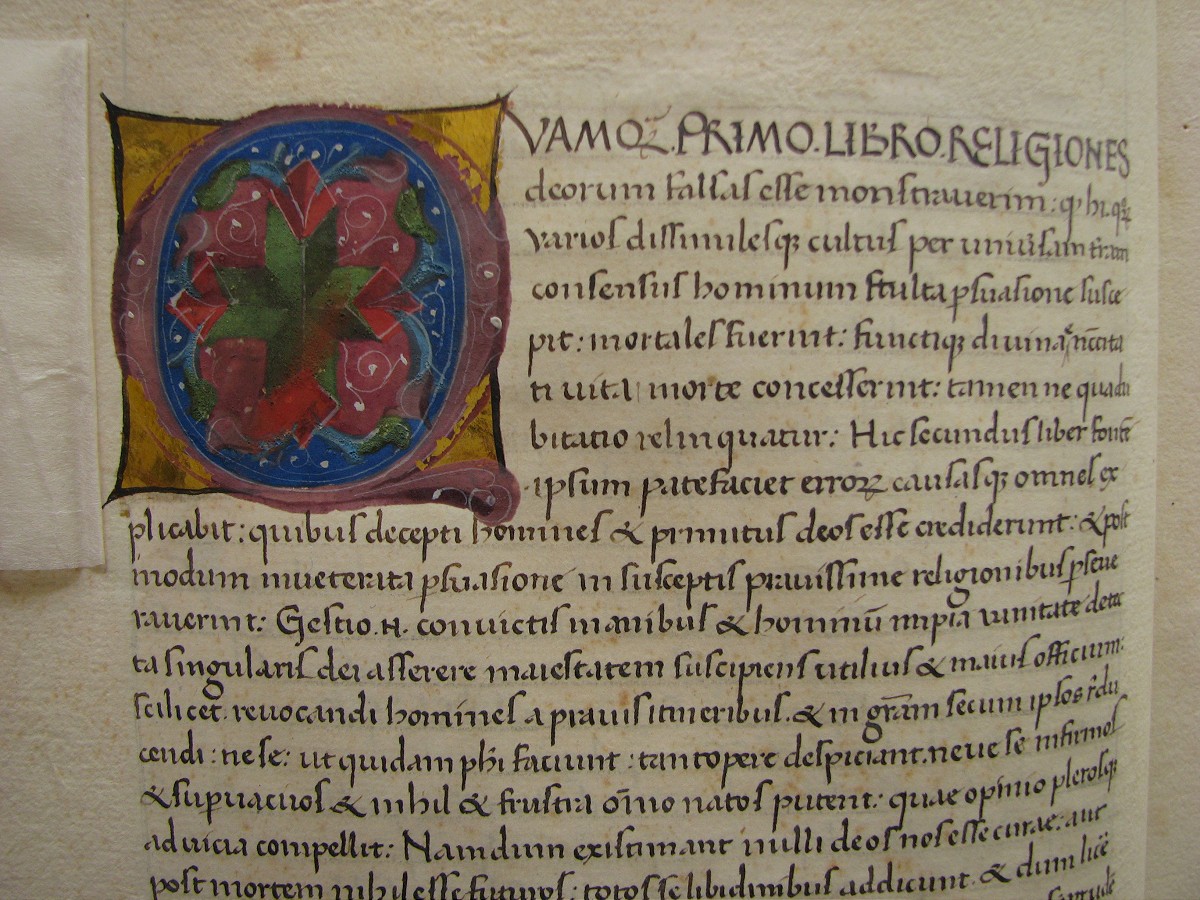 QVAMQꝪ. PRIMO. LIBRO. RELIGIONES
deorum falſas eſſe monſtrauerim: ꝙ hi. qꝝ
varios diſſimileſqꝫ cultus per uniuſam
conſenſus hominum ſtulta ꝑſuaſione ſuſce
pit: mortaleſ fuerint: functiqꝫ diuina
ti uita morte conceſſerint: tamen ne qua du
bitatio relinquatur: Hic ſecunduſ liber fonte
ipſum patefaciet erroꝝ cauſaſqꝫ omneſ ex
plicabit: quibuſ decepti homineſ & primituſ deoſ eſſe crediderint: & poſt
modum inueterita ꝑſuaſione in ſuſceptiſ prauiſſime religionibuſ ꝑſeue
rauerint: Geſtio .N. conuictiſ inanibuſ & hominū impia uanitate detec
ta ſingulariſ dei aſſerere maieſtatem ſuſcipienſ utiliuſ & maiuſ officium:
ſcilicet. reuocandi homineſ a prauiſ itineribuſ. & in gr̄am ſecum ipſoſ r̄du
cendi: ne ſe: ut quidam phi faciunt: tantopere deſpiciant. neue ſe infirmoſ
& suꝑuacuoſ & nihil & fruſtra ōīno natoſ putent: quae opinio pleroſqꝫ
ad uicia compellit: Nam dum exiſtimant nulli deo noſ eſſe curae: aut
poſt mortem nihil eſſe futuroſ: totoſ ſe libidinibuſ addicunt. & dum licē